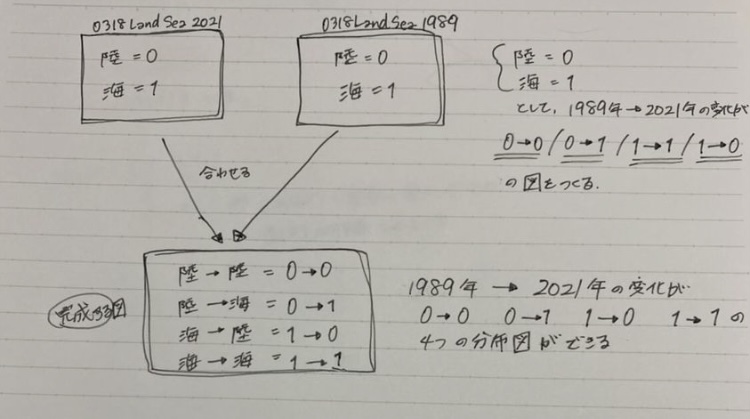 0318 Land Sea 2021
陸 = 0
海 = 1
0318 Land Sea 1989
陸 = 0
海 = 1
陸 = 0
海 = 1
として、1989年→2021年の変化が
0→0 / 0→1 / 1→1 / 1→0
の図をつくる.
合わせる
完成する図
陸→陸 = 0→0
陸→海 = 0→1
海→陸 = 1→0
海→海 = 1→1
1989年 → 2021年の変化が
0→0 0→1 1→0 1→1 の
4つの分布図ができる